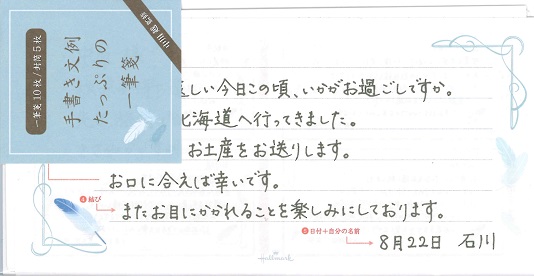 一筆箋10枚/封筒5枚
手書き文例
たっぷりの
一筆箋
しい今日この頃、いかがお過ごしですか。
北海道へ行ってきました。
お土産をお送りします。
お口に合えば幸いです。
④結び
またお目にかかれることを楽しみにしております。
⑤日付+自分の名前
8月22日 石川
Hallmark